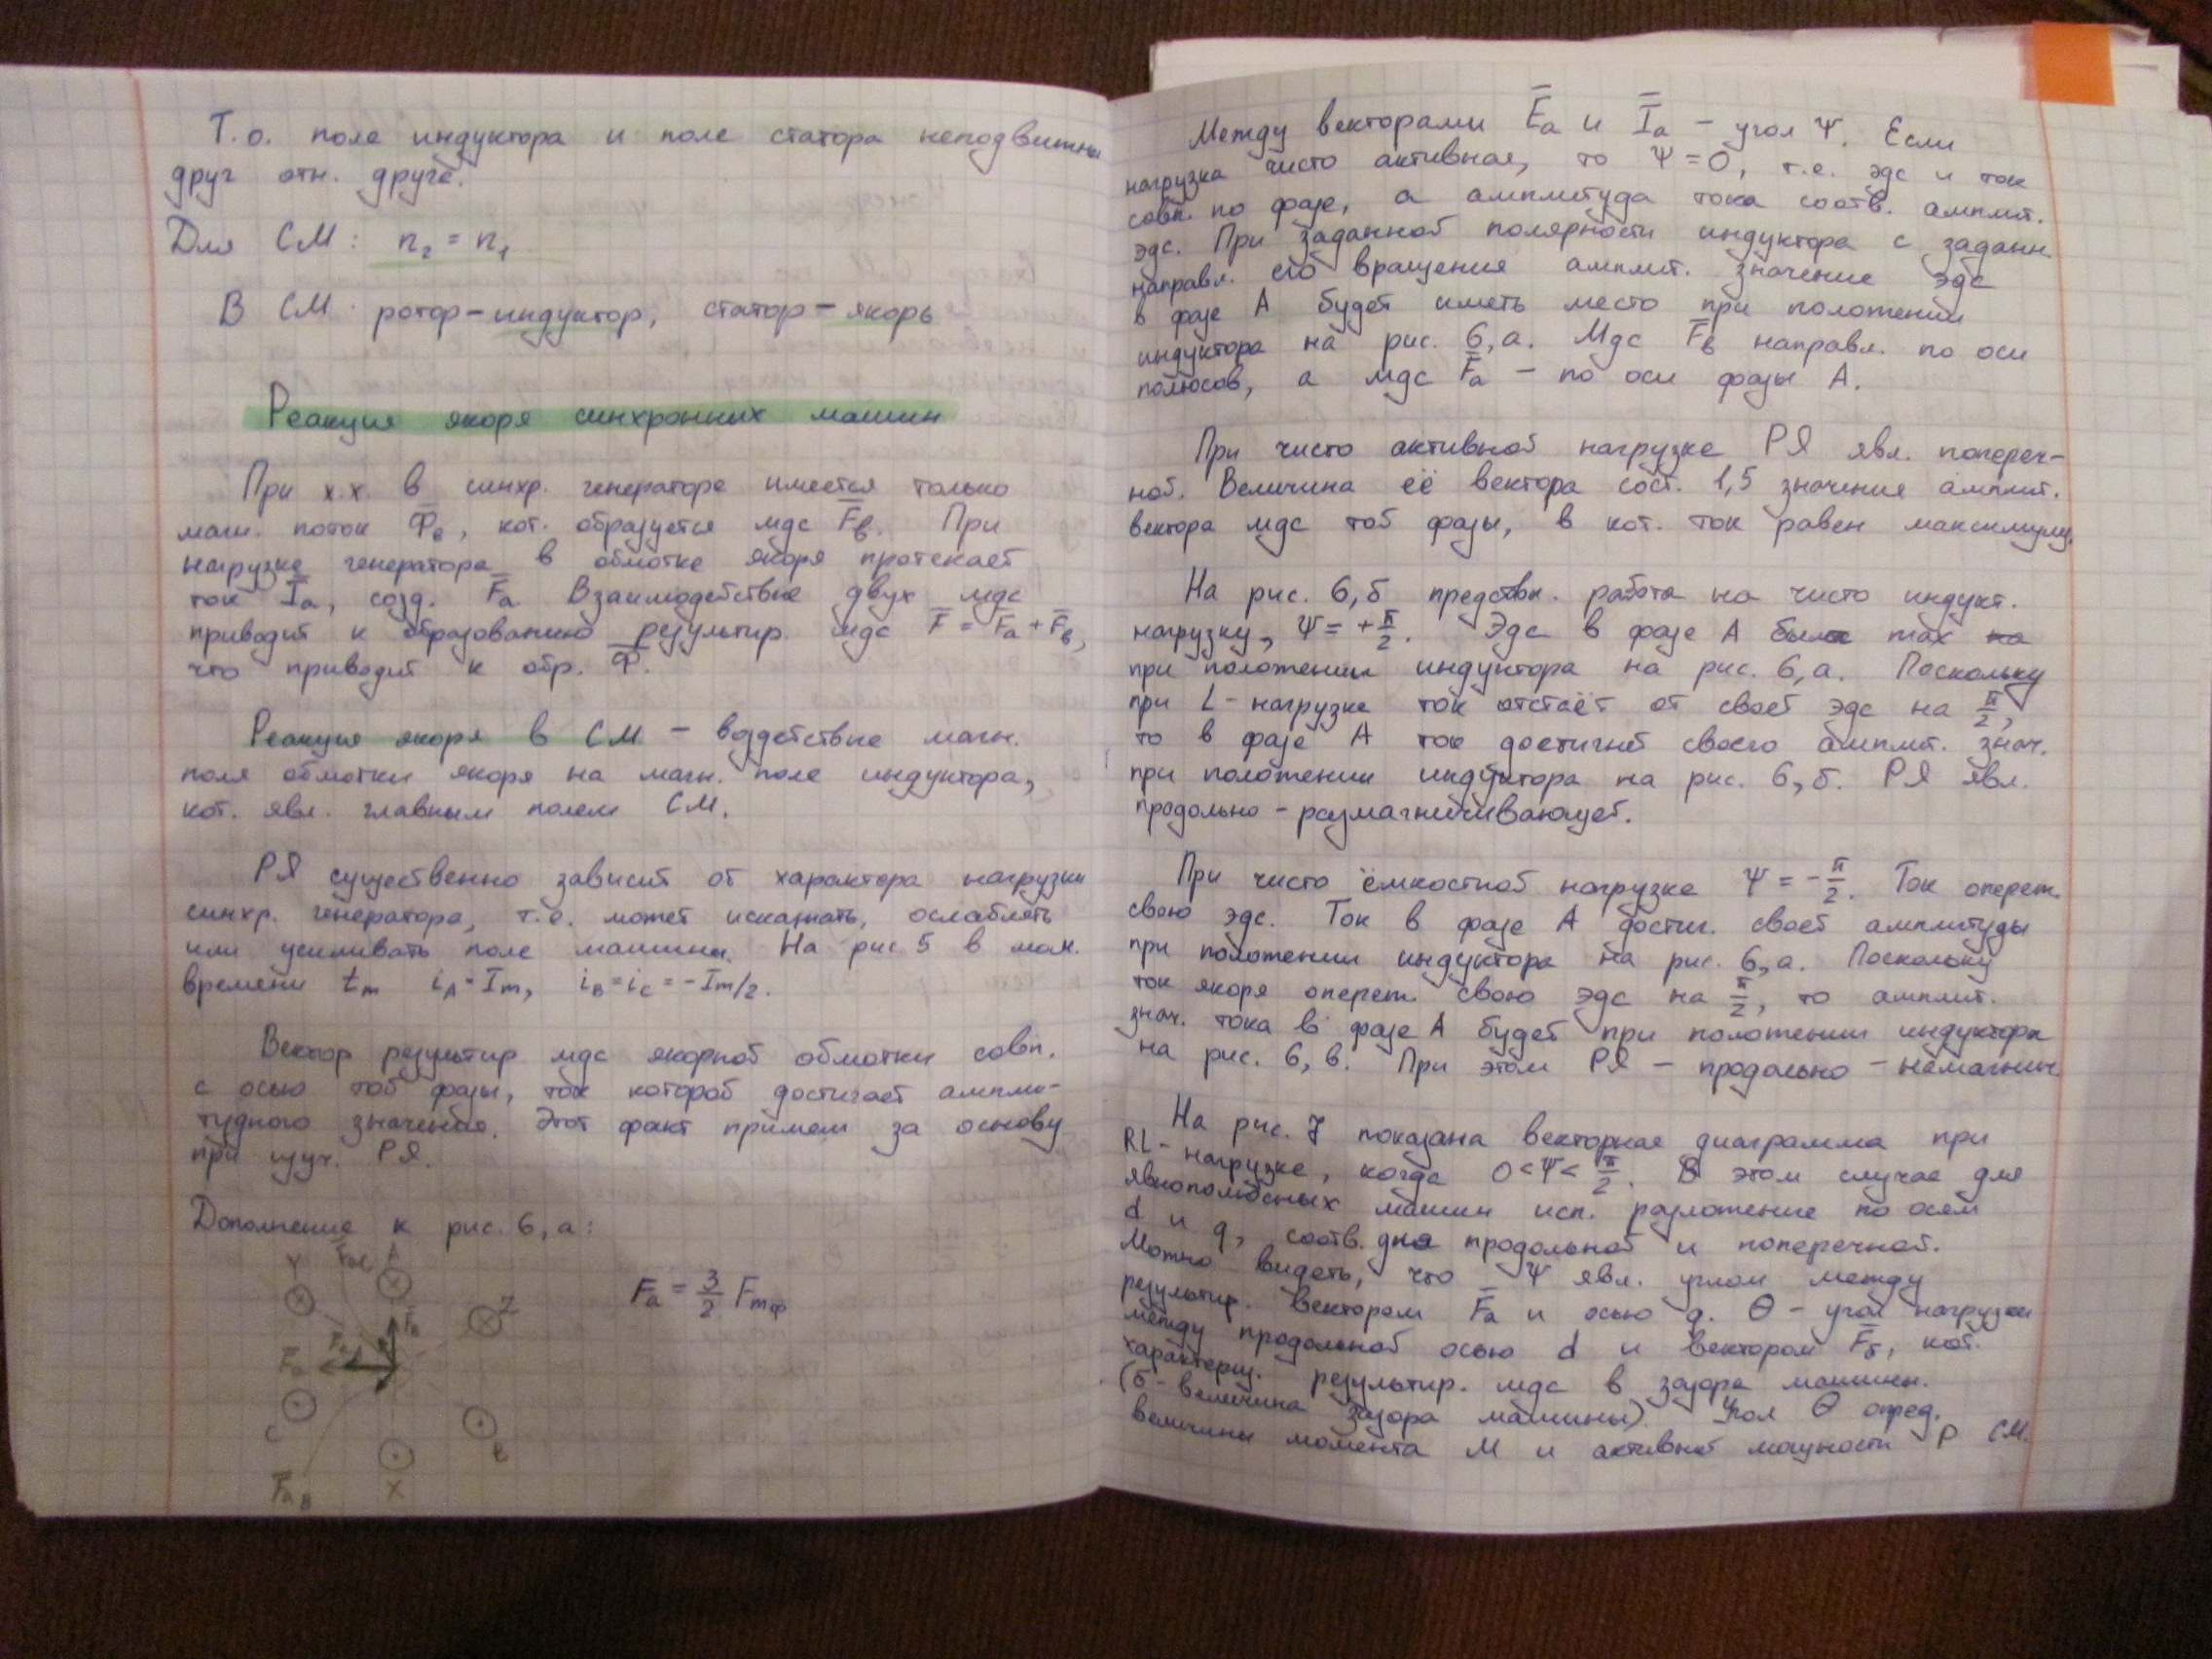 Т.о. поле индуктора и поле статора неподвижны
друг отн. друга.
Для СМ: n₂ = n₁
В СМ: ротор – индуктор, статор – якорь
Реакция якоря синхронных машин
При х.х. в синхр. генераторе имеется только
магн. поток Φ̅в, кот. образуется мдс F̅в. При
нагрузке генератора в обмотке якоря протекает
ток I̅a, созд. F̅a. Взаимодействие двух мдс
приводит к образованию результир. мдс F̅ = F̅a + F̅в,
что приводит к обр. Φ̅.
Реакция якоря в СМ – воздействие магн.
поля обмотки якоря на магн. поле индуктора,
кот. явл. главным полем СМ.
РЯ существенно зависит от характера нагрузки
синхр. генератора, т.е. может искажать, ослаблять
или усиливать поле машины. На рис 5 в мом.
времени tm iA = Im, iB = iC = -Im/2.
Вектор результир мдс якорной обмотки совп.
с осью той фазы, ток которой достигает ампли-
тудного значения. Этот факт примем за основу
при изуч. РЯ.
Дополнение к рис. 6, а:
Fa = 3/2 Fmф
Y F̅aC A
Z
F̅в
F̅a
C
B
F̅aB X
Между векторами E̅a и I̅a – угол Ψ. Если
нагрузка чисто активная, то Ψ = 0, т.е. эдс и ток
совп. по фазе, а амплитуда тока соотв. амплит.
эдс. При заданной полярности индуктора с заданн.
направл. его вращения амплит. значение эдс
в фазе А будет иметь место при положении
индуктора на рис. 6, а. Мдс F̅в направл. по оси
полюсов, а мдс F̅a – по оси фазы А.
При чисто активной нагрузке РЯ явл. попереч-
ной. Величина её вектора сост. 1,5 значения амплит.
вектора мдс той фазы, в кот. ток равен максимуму.
На рис. 6, б представл. работа на чисто индукт.
нагрузку, Ψ = +π/2. Эдс в фазе А была max
при положении индуктора на рис. 6, а. Поскольку
при L-нагрузке ток отстаёт от своей эдс на π/2,
то в фазе А ток достигнет своего амплит. знач.
при положении индуктора на рис. 6, б. РЯ явл.
продольно – размагничивающей.
При чисто ёмкостной нагрузке Ψ = -π/2. Ток опереж.
свою эдс. Ток в фазе А достиг. своей амплитуды
при положении индуктора на рис. 6, а. Поскольку
ток якоря опереж. свою эдс на π/2, то амплит.
знач. тока в фазе А будет при положении индуктора
на рис. 6, в. При этом РЯ – продольно – намагнич
На рис. 7 показана векторная диаграмма при
RL-нагрузке, когда 0 < Ψ < π/2. В этом случае для
явнополюсных машин исп. разложение по осям
d и q, соотв. для продольной и поперечной.
Можно видеть, что Ψ явл. углом между
результир. вектором F̅a и осью q. Θ – угол нагрузки
между продольной осью d и вектором F̅δ, кот.
характериз. результир. мдс в зазоре машины.
(δ – величина зазора машины). Угол Θ опред.
величины момента М и активной мощности Р СМ.